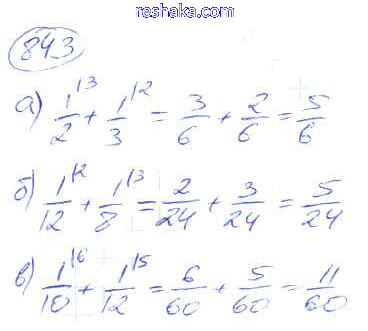 reshaka.com
843
а) 1/2 \3 + 1/3 \2 = 3/6 + 2/6 = 5/6
б) 1/12 \2 + 1/8 \3 = 2/24 + 3/24 = 5/24
в) 1/10 \6 + 1/12 \5 = 6/60 + 5/60 = 11/60